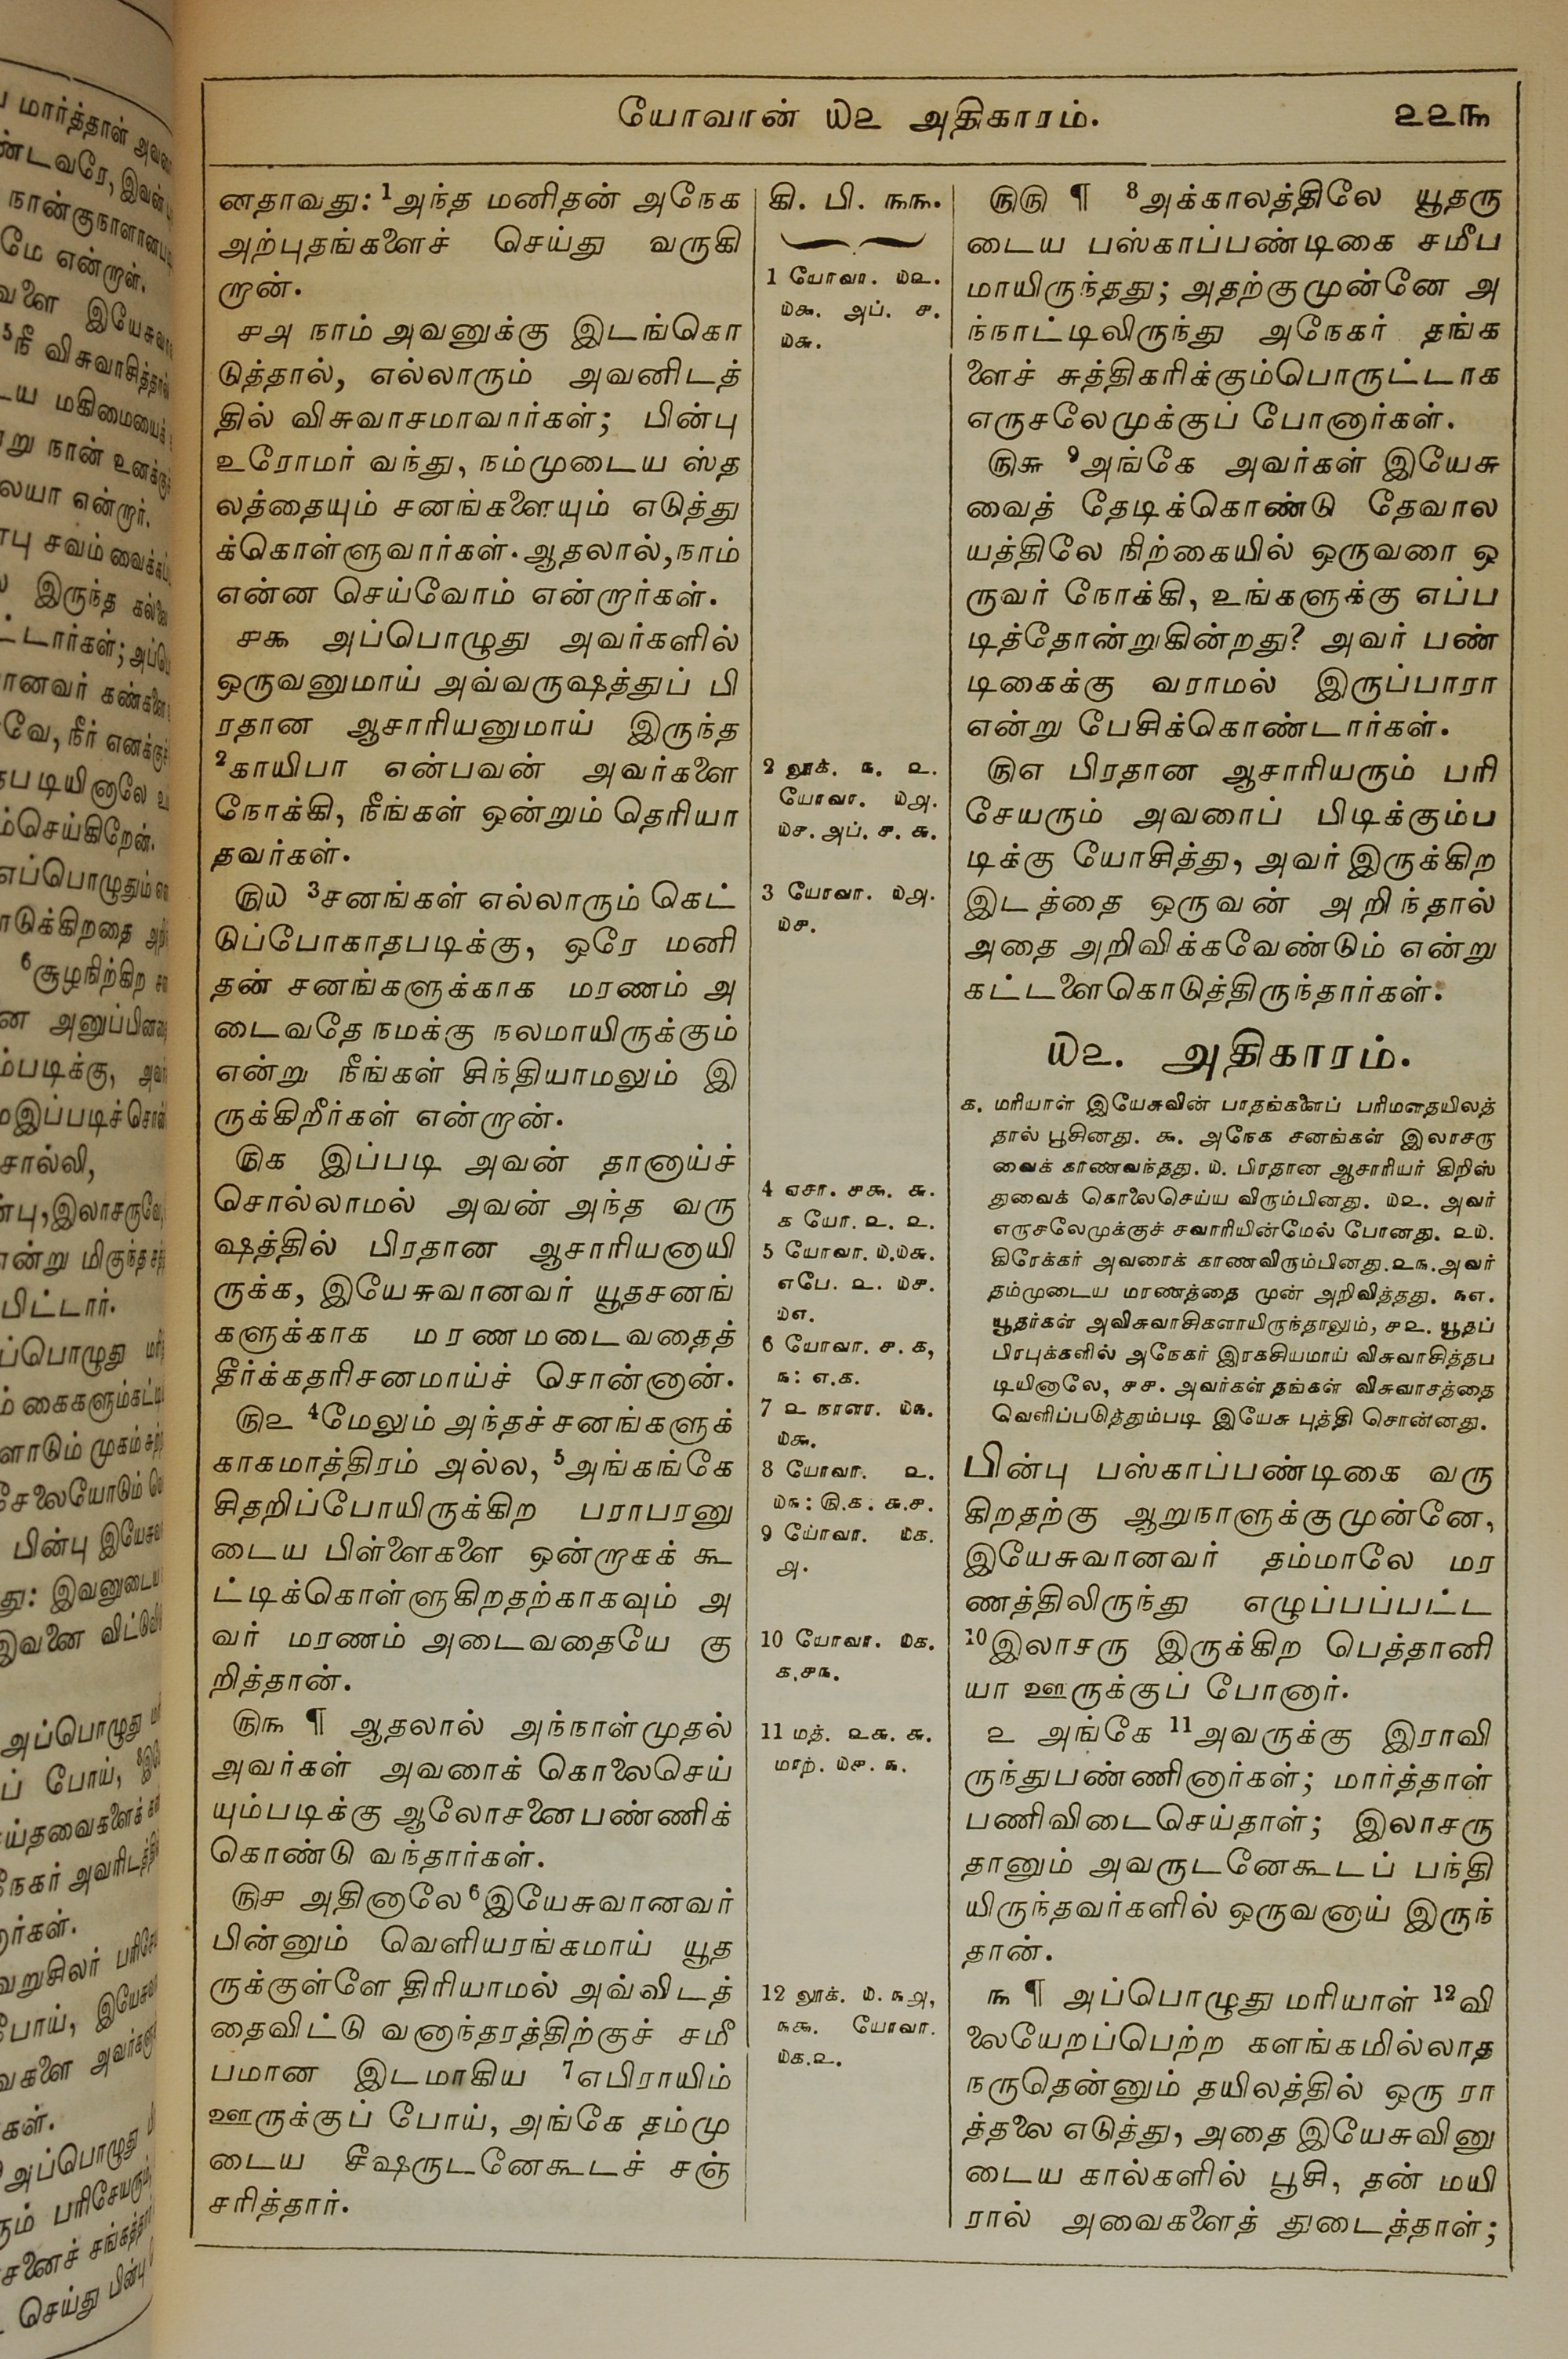 யோவான் ௰௨ அதிகாரம்.
௨௨௩
னதாவது: ¹அந்த மனிதன் அநேக
அற்புதங்களைச் செய்து வருகி
றான்.
௪௮ நாம் அவனுக்கு இடங்கொ
டுத்தால், எல்லாரும் அவனிடத்
தில் விசுவாசமாவார்கள்; பின்பு
உரோமர் வந்து, நம்முடைய ஸ்த
லத்தையும் சனங்களையும் எடுத்து
க்கொள்ளுவார்கள். ஆதலால், நாம்
என்ன செய்வோம் என்றார்கள்.
௪௯ அப்பொழுது அவர்களில்
ஒருவனுமாய் அவ்வருஷத்துப் பி
ரதான ஆசாரியனுமாய் இருந்த
²காயிபா என்பவன் அவர்களை
நோக்கி, நீங்கள் ஒன்றும் தெரியா
தவர்கள்.
௫௰ ³சனங்கள் எல்லாரும் கெட்
டுப்போகாதபடிக்கு, ஒரே மனி
தன் சனங்களுக்காக மரணம் அ
டைவதே நமக்கு நலமாயிருக்கும்
என்று நீங்கள் சிந்தியாமலும் இ
ருக்கிறீர்கள் என்றான்.
௫௧ இப்படி அவன் தானாய்ச்
சொல்லாமல் அவன் அந்த வரு
ஷத்தில் பிரதான ஆசாரியனாயி
ருக்க, இயேசுவானவர் யூதசனங்
களுக்காக மரணமடைவதைத்
தீர்க்கதரிசனமாய்ச் சொன்னான்.
௫௨ ⁴மேலும் அந்தச் சனங்களுக்
காகமாத்திரம் அல்ல, ⁵அங்கங்கே
சிதறிப்போயிருக்கிற பராபரனு
டைய பிள்ளைகளை ஒன்றாகக் கூ
ட்டிக்கொள்ளுகிறதற்காகவும் அ
வர் மரணம் அடைவதையே கு
றித்தான்.
௫௩ ¶ ஆதலால் அந்நாள்முதல்
அவர்கள் அவரைக் கொலைசெய்
யும்படிக்கு ஆலோசனைபண்ணிக்
கொண்டு வந்தார்கள்.
௫௪ அதினாலே ⁶இயேசுவானவர்
பின்னும் வெளியரங்கமாய் யூத
ருக்குள்ளே திரியாமல் அவ்விடத்
தைவிட்டு வனாந்தரத்திற்குச் சமீ
பமான இடமாகிய ⁷எபிராயிம்
ஊருக்குப் போய், அங்கே தம்மு
டைய சீஷருடனேகூடச் சஞ்
சரித்தார்.
கி. பி. ௩௩.
1 யோவா. ௰௨.
௰௯. அப். ௪.
௰௬.
2 லூக். ௩. ௨.
யோவா. ௰௮.
௰௪. அப். ௪. ௬.
3 யோவா. ௰௮.
௰௪.
4 ஏசா. ௪௯. ௬.
௧ யோ. ௨. ௨.
5 யோவா. ௰.௰௬.
எபே. ௨. ௰௪.
௰௭.
6 யோவா. ௪. ௧,
௩: ௭.௧.
7 ௨ நாளா. ௰௩.
௰௯.
8 யோவா. ௨.
௰௩: ௫.௧. ௬.௪.
9 யோவா. ௰௧.
௮.
10 யோவா. ௰௧.
௧.௪௩.
11 மத். ௨௬. ௬.
மாற். ௰௪. ௩.
12 லூக். ௰. ௩௮,
௩௯. யோவா.
௰௧.௨.
௫௫ ¶ ⁸அக்காலத்திலே யூதரு
டைய பஸ்காப்பண்டிகை சமீப
மாயிருந்தது; அதற்குமுன்னே அ
ந்நாட்டிலிருந்து அநேகர் தங்க
ளைச் சுத்திகரிக்கும்பொருட்டாக
எருசலேமுக்குப் போனார்கள்.
௫௬ ⁹அங்கே அவர்கள் இயேசு
வைத் தேடிக்கொண்டு தேவால
யத்திலே நிற்கையில் ஒருவரை ஒ
ருவர் நோக்கி, உங்களுக்கு எப்ப
டித்தோன்றுகின்றது? அவர் பண்
டிகைக்கு வராமல் இருப்பாரா
என்று பேசிக்கொண்டார்கள்.
௫௭ பிரதான ஆசாரியரும் பரி
சேயரும் அவரைப் பிடிக்கும்ப
டிக்கு யோசித்து, அவர் இருக்கிற
இடத்தை ஒருவன் அறிந்தால்
அதை அறிவிக்கவேண்டும் என்று
கட்டளைகொடுத்திருந்தார்கள்.
௰௨. அதிகாரம்.
௧. மரியாள் இயேசுவின் பாதங்களைப் பரிமளதயிலத்
தால் பூசினது. ௯. அநேக சனங்கள் இலாசரு
வைக் காணவந்தது. ௰. பிரதான ஆசாரியர் கிறிஸ்
துவைக் கொலைசெய்ய விரும்பினது. ௰௨. அவர்
எருசலேமுக்குச் சவாரியின்மேல் போனது. ௨௰.
கிரேக்கர் அவரைக் காணவிரும்பினது. ௨௩. அவர்
தம்முடைய மரணத்தை முன் அறிவித்தது. ௩௭.
யூதர்கள் அவிசுவாசிகளாயிருந்தாலும், ௪௨. யூதப்
பிரபுக்களில் அநேகர் இரகசியமாய் விசுவாசித்தப
டியினாலே, ௪௪. அவர்கள் தங்கள் விசுவாசத்தை
வெளிப்படுத்தும்படி இயேசு புத்தி சொன்னது.
பின்பு பஸ்காப்பண்டிகை வரு
கிறதற்கு ஆறுநாளுக்குமுன்னே,
இயேசுவானவர் தம்மாலே மர
ணத்திலிருந்து எழுப்பப்பட்ட
¹⁰இலாசரு இருக்கிற பெத்தானி
யா ஊருக்குப் போனார்.
௨ அங்கே ¹¹அவருக்கு இராவி
ருந்துபண்ணினார்கள்; மார்த்தாள்
பணிவிடைசெய்தாள்; இலாசரு
தானும் அவருடனேகூடப் பந்தி
யிருந்தவர்களில் ஒருவனாய் இருந்
தான்.
௩ ¶ அப்பொழுது மரியாள் ¹²வி
லையேறப்பெற்ற களங்கமில்லாத
நருதென்னும் தயிலத்தில் ஒரு ரா
த்தலை எடுத்து, அதை இயேசுவினு
டைய கால்களில் பூசி, தன் மயி
ரால் அவைகளைத் துடைத்தாள்;